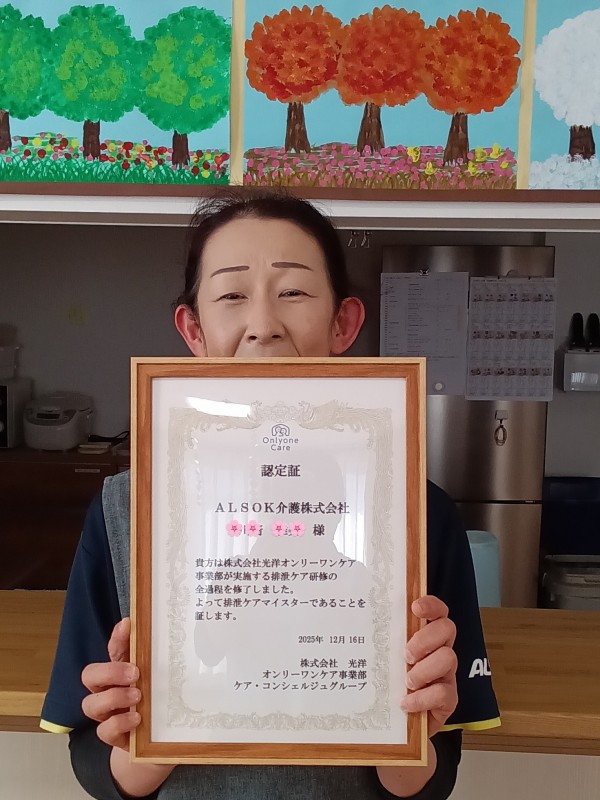 Onlyone
Care
認定証
ALSOK介護株式会社
様
貴方は株式会社光洋オンリーワンケア
事業部が実施する排泄ケア研修の
全過程を修了しました。
よって排泄ケアマイスターであることを
証します。
2025年 12月 16日
株式会社 光洋
オンリーワンケア事業部
ケア・コンシェルジュグループ
AL